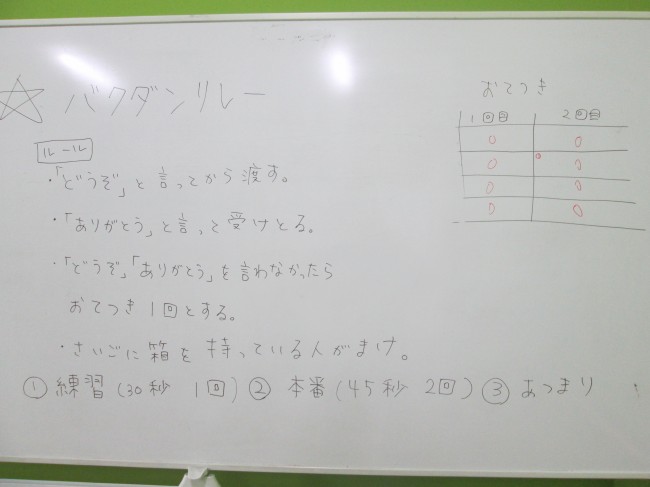 ☆ バクダンリレー
おてつき
1回目 2回目
0 0
0 0 0
0 0
0 0
ルール
・「どうぞ」と言ってから渡す。
・「ありがとう」と言って受けとる。
・「どうぞ」「ありがとう」を言わなかったら
おてつき1回とする。
・さいごに箱を持っている人がまけ。
① 練習(30秒 1回) ② 本番(45秒 2回) ③ あつまり